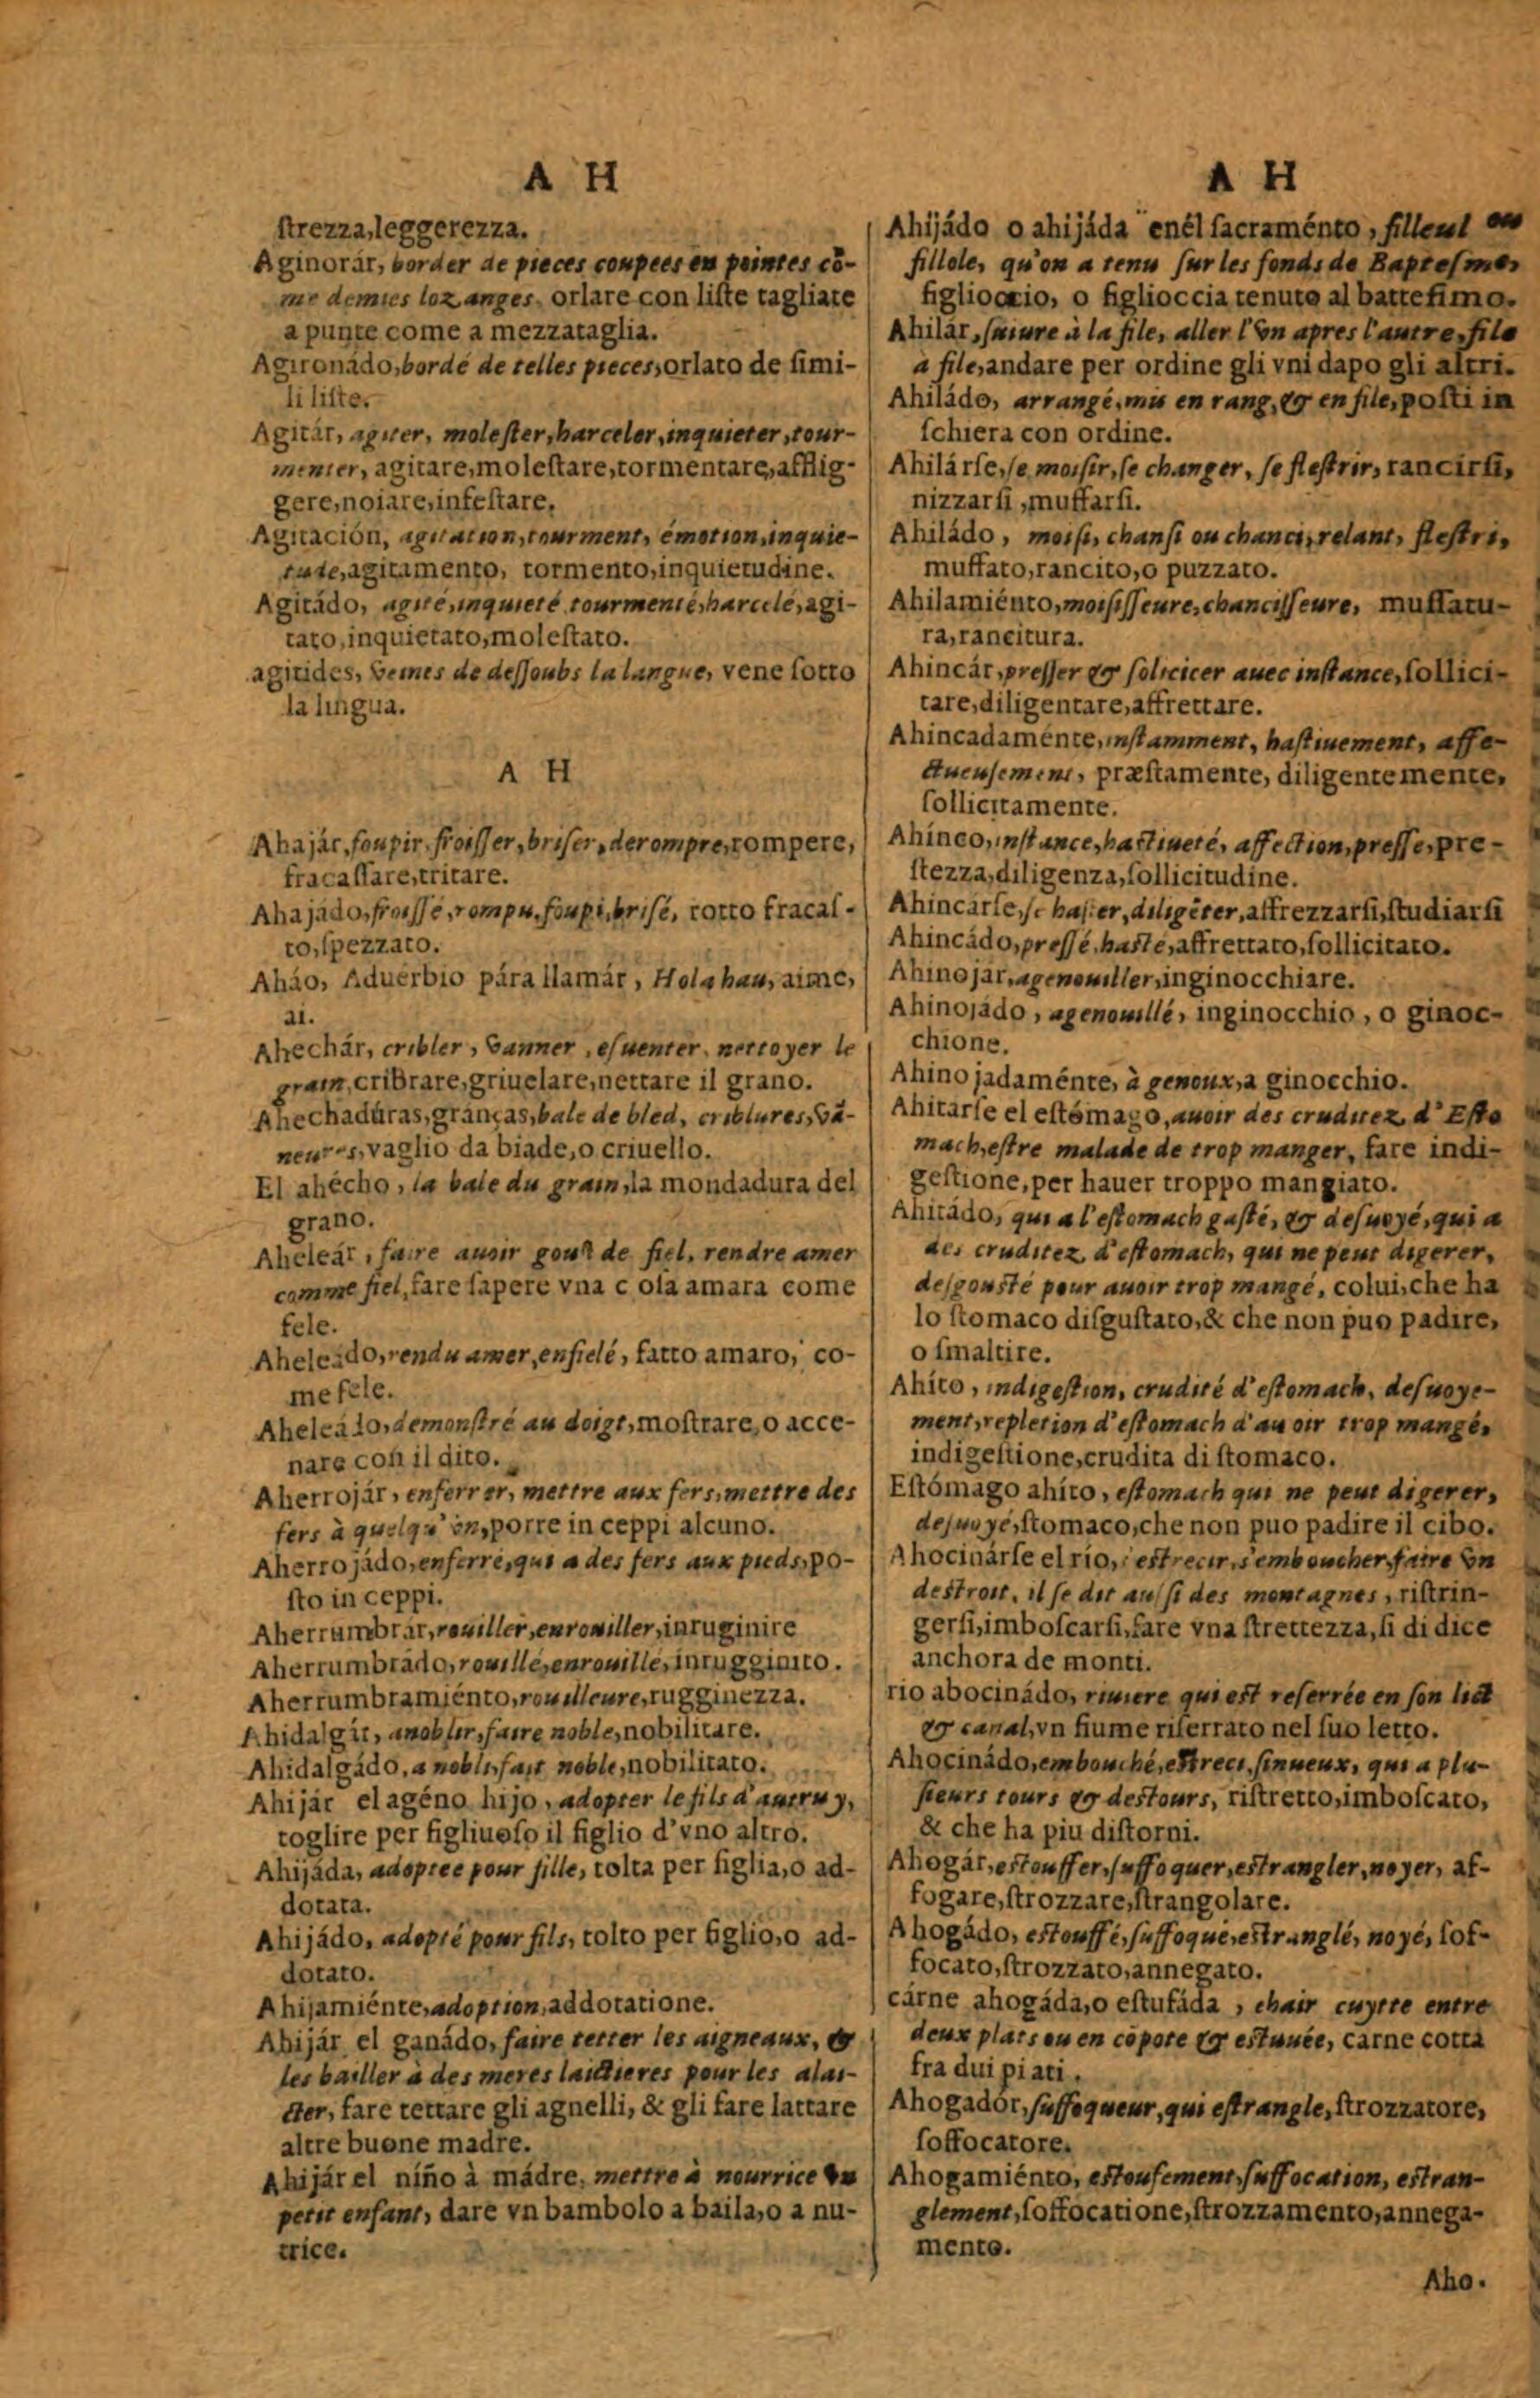 A H
ſtrezza,leggerezza.
Aginorár, border de pieces coupees en pointes cõ-
me demies lozanges. orlare con liſte tagliate
a punte come a mezzataglia.
Agironádo,bordé de telles pieces,orlato de ſimi-
li liſte.
Agitár, agiter, moleſter,harceler,inquieter,tour-
menter, agitare,moleſtare,tormentare,afflig-
gere,noiare,infeſtare.
Agitación, agitation,tourment, émotion,inquie-
tude,agitamento, tormento,inquietudine.
Agitádo, agité,inquieté tourmenté,harcelé,agi-
tato,inquietato,moleſtato.
agitides, veines de deſſoubs la langue, vene ſotto
la lingua.
A H
Ahajár,foupir.froiſſer,briſer,derompre,rompere,
fracaſſare,tritare.
Ahajádo,froiſſé,rompu,foupi,briſé, rotto fracaſ-
to,ſpezzato.
Aháo, Aduérbio pára llamár, Hola hau, aime,
ai.
Ahechár, cribler, vanner, eſuenter, nettoyer le
grain,cribrare,griuelare,nettare il grano.
Ahechadúras,granças,bale de bled, criblures,vã-
neures,vaglio da biade,o criuello.
El ahécho, la bale du grain,la mondadura del
grano.
Aheleár, faire auoir gouſt de fiel, rendre amer
comme fiel,fare ſapere vna c oſa amara come
fele.
Aheleádo,rendu amer,enfielé, fatto amaro, co-
me fele.
Aheleádo,demonſtré au doigt,moſtrare,o acce-
nare con il dito.
Aherrojár, enferrer, mettre aux fers,mettre des
fers à quelqu'vn,porre in ceppi alcuno.
Aherrojádo,enferré,qui a des fers aux pieds,po-
ſto in ceppi.
Aherrumbrár,rouiller,enrouiller,inruginire
Aherrumbrádo,rouillé,enrouillé,inrugginito.
Aherrumbramiénto,rouilleure,rugginezza.
Ahidalgár, anoblir,faire noble,nobilitare.
Ahidalgádo,a nobli,fait noble,nobilitato.
Ahijár el agéno hijo, adopter le fils d'autruy,
toglire per figliuoſo il figlio d'vno altro.
Ahijáda, adoptee pour fille, tolta per figlia,o ad-
dotata.
Ahijádo, adopté pour fils, tolto per figlio,o ad-
dotato.
Ahijamiénte,adoption,addotatione.
Ahijár el ganádo, faire tetter les aigneaux, &
les bailler à des meres laictieres pour les alai-
cter, fare tettare gli agnelli, & gli fare lattare
altre buone madre.
Ahijár el níño à mádre, mettre à nourrice vn
petit enfant, dare vn bambolo a baila,o a nu-
trice.
A H
Ahijádo o ahijáda enél ſacraménto, filleul ou
fillole, qu'on a tenu ſur les fonds de Bapteſme,
figlioccio, o figlioccia tenuto al batteſimo.
Ahilár,ſuiure à la file, aller l'vn apres l'autre,file
à file,andare per ordine gli vni dapo gli altri.
Ahiládo, arrangé,mis en rang,& en file,poſti in
ſchiera con ordine.
Ahilárſe,ſe moiſir,ſe changer, ſe fleſtrir, rancirſi,
nizzarſi,muffarſi.
Ahiládo, moiſi, chanſi ou chanci,relant, fleſtri,
muffato,rancito,o puzzato.
Ahilamiénto,moiſiſſeure,chanciſſeure, muffatu-
ra,rancitura.
Ahincár,preſſer & ſolicicer auec inſtance,ſollici-
tare,diligentare,affrettare.
Ahincadaménte,inſtamment, haſtiuement, affe-
ctueuſement, præſtamente, diligentemente,
ſollicitamente.
Ahínco,inſtance,haſtiueté, affection,preſſe,pre-
ſtezza,diligenza,ſollicitudine.
Ahincárſe,ſe haſter,diligẽter,affrezzarſi,ſtudiarſi
Ahincádo,preſſé,haſté,affrettato,ſollicitato.
Ahinojár,agenouiller,inginocchiare.
Ahinojádo, agenouillé, inginocchio, o ginoc-
chione.
Ahinojadaménte, à genoux,a ginocchio.
Ahitárſe el eſtómago,auoir des cruditez d'Eſto
mach,eſtre malade de trop manger, fare indi-
geſtione,per hauer troppo mangiato.
Ahitádo, qui a l'eſtomach gaſté, & deſuoyé,qui a
des cruditez d'eſtomach, qui ne peut digerer,
deſgouſté pour auoir trop mangé, colui,che ha
lo ſtomaco diſguſtato,& che non puo padire,
o ſmaltire.
Ahíto, indigeſtion, crudité d'eſtomach, deſuoye-
ment,repletion d'eſtomach d'au oir trop mangé,
indigeſtione,crudita di ſtomaco.
Eſtómago ahíto, eſtomach qui ne peut digerer,
deſuoyé,ſtomaco,che non puo padire il cibo.
Ahocinárſe el río,s'eſtrecir,s'emboucher,faire vn
deſtroit, il ſe dit auſſi des montagnes, riſtrin-
gerſi,imboſcarſi,fare vna ſtrettezza,ſi di dice
anchora de monti.
rio abocinádo, riuiere qui eſt reſerrée en ſon lict
& canal,vn fiume riſerrato nel ſuo letto.
Ahocinádo,embouché,eſtreci,ſinueux, qui a plu-
ſieurs tours & deſtours, riſtretto,imboſcato,
& che ha piu diſtorni.
Ahogár,eſtouffer,ſuffoquer,eſtrangler,noyer, af-
fogare,ſtrozzare,ſtrangolare.
Ahogádo, eſtouffé,ſuffoqué,eſtranglé, noyé, ſof-
focato,ſtrozzato,annegato.
cárne ahogáda,o eſtufáda, chair cuytte entre
deux plats ou en cõpote & eſtuuée, carne cotta
fra dui piati.
Ahogadór,ſuffoqueur,qui eſtrangle,ſtrozzatore,
ſoffocatore.
Ahogamiénto, eſtoufement,ſuffocation, eſtran-
glement,ſoffocatione,ſtrozzamento,annega-
mento.
Aho.